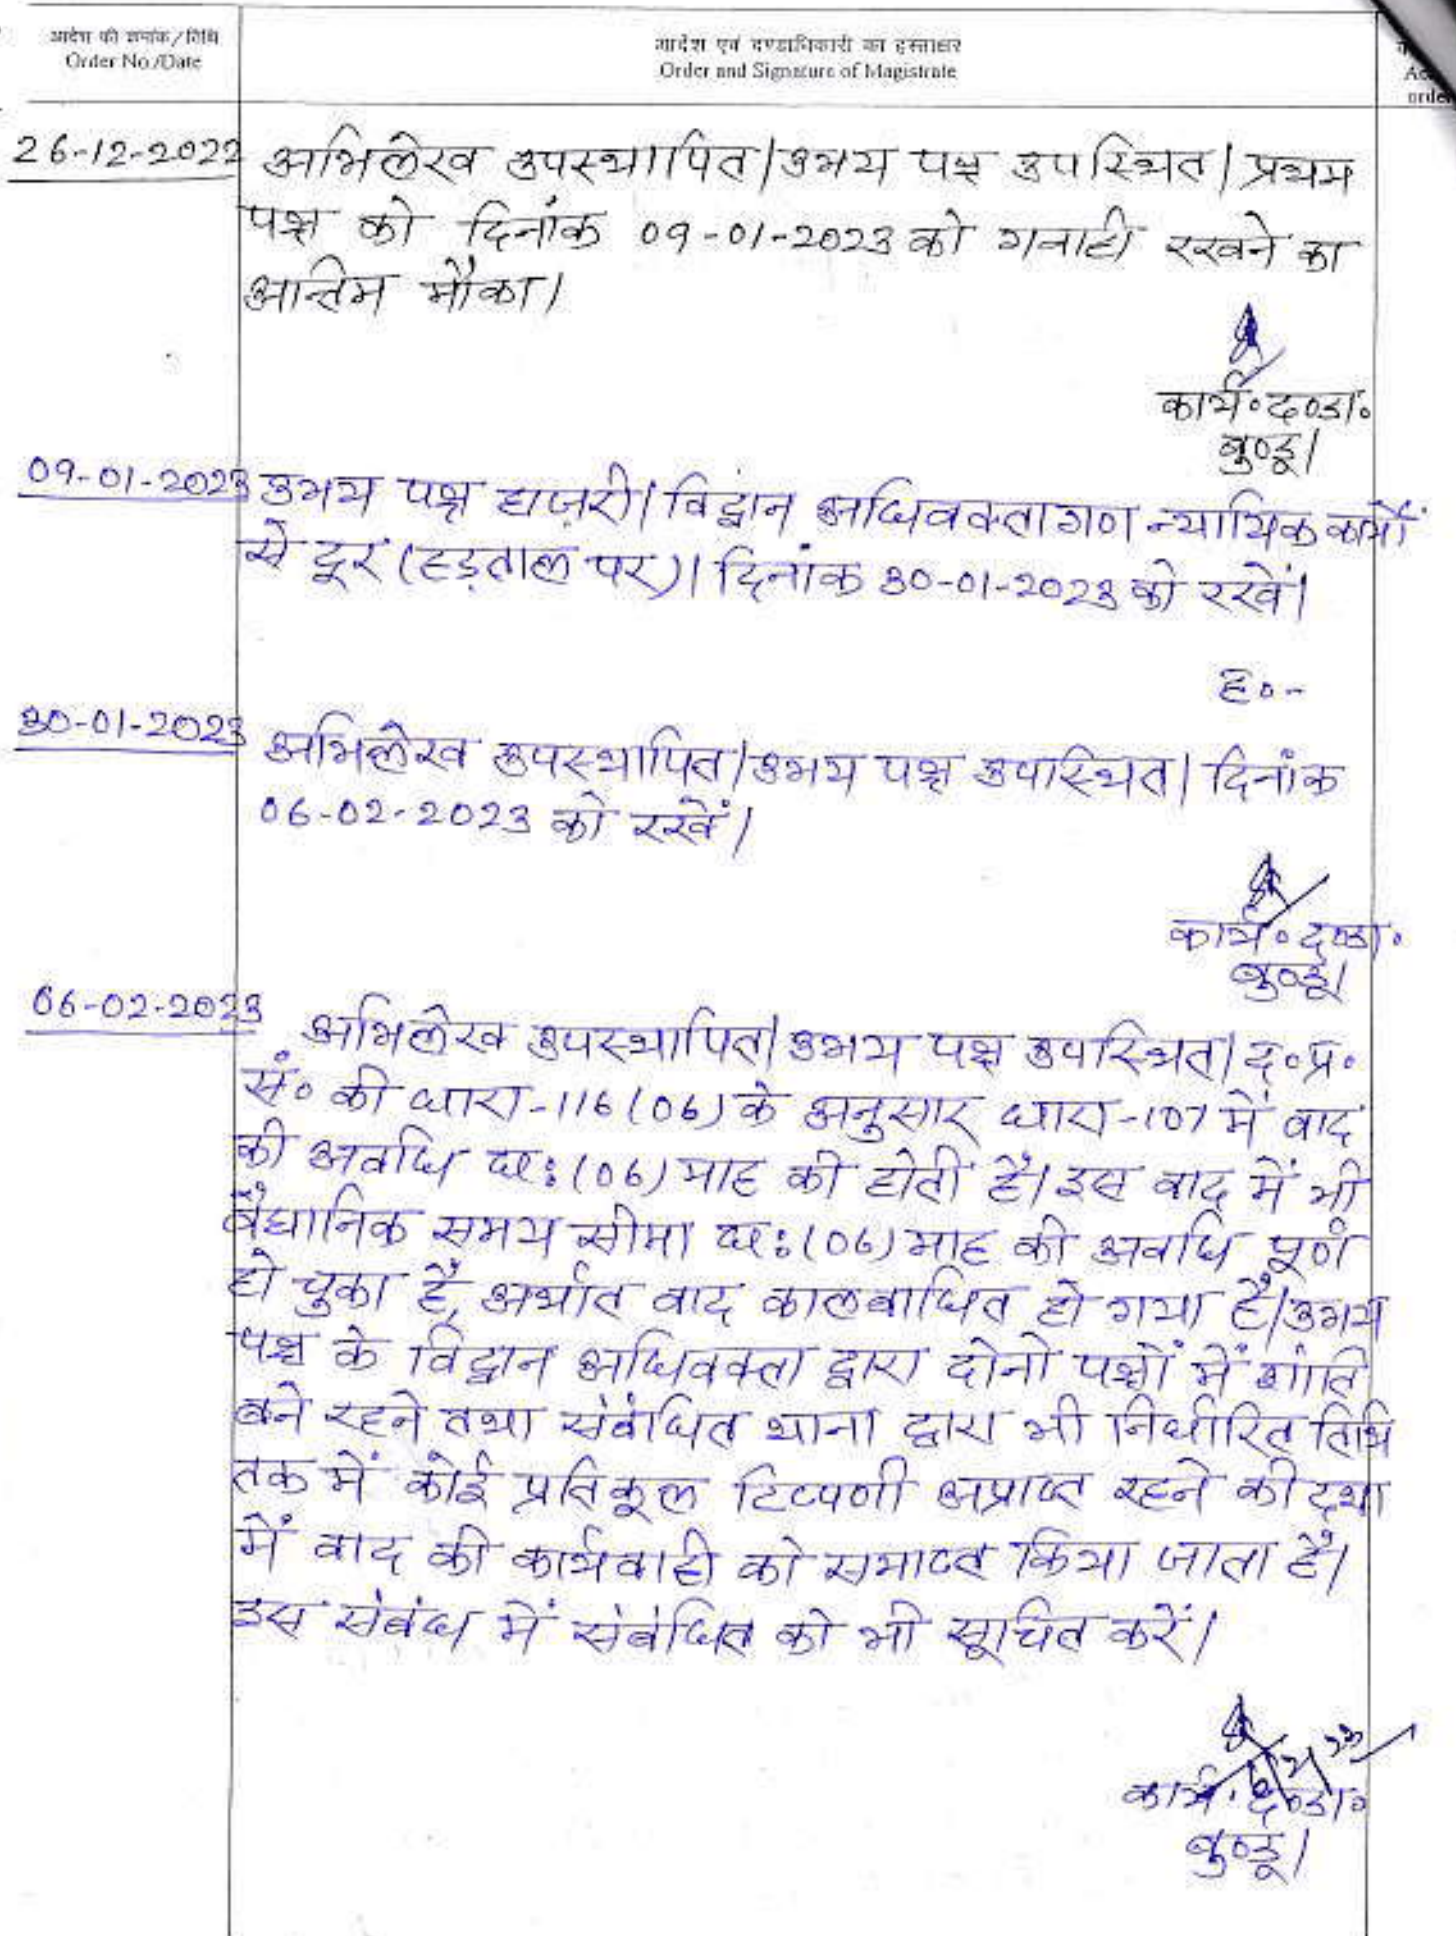 आदेश की क्रमांक/तिथि
Order No./Date
आदेश एवं दण्डाधिकारी का हस्ताक्षर
Order and Signature of Magistrate
26-12-2022 अभिलेख उपस्थापित। उभय पक्ष उपस्थित। प्रथम
पक्ष को दिनांक 09-01-2023 को गवाही रखने का
अन्तिम मौका।
कार्य॰ दण्डा॰
बुण्डू।
09-01-2023 उभय पक्ष हाज़री। विद्वान अधिवक्तागण न्यायिक कार्यों
से दूर (हड़ताल पर)। दिनांक 30-01-2023 को रखें।
ह॰-
30-01-2023 अभिलेख उपस्थापित। उभय पक्ष उपस्थित। दिनांक
06-02-2023 को रखें।
कार्य॰ दण्डा॰
बुण्डू।
06-02-2023 अभिलेख उपस्थापित। उभय पक्ष उपस्थित। द॰प्र॰
सं॰ की धारा-116(06) के अनुसार धारा-107 में वाद
की अवधि छः(06) माह की होती है। इस वाद में भी
वैधानिक समय सीमा छः(06) माह की अवधि पूर्ण
हो चुका है, अर्थात वाद कालबाधित हो गया है। उभय
पक्ष के विद्वान अधिवक्ता द्वारा दोनो पक्षों में शांति
बने रहने तथा संबंधित थाना द्वारा भी निर्धारित तिथि
तक में कोई प्रतिकूल टिप्पणी अप्राप्त रहने की दशा
में वाद की कार्यवाही को समाप्त किया जाता है।
इस संबंध में संबंधित को भी सूचित करें।
कार्य॰ दण्डा॰
बुण्डू।